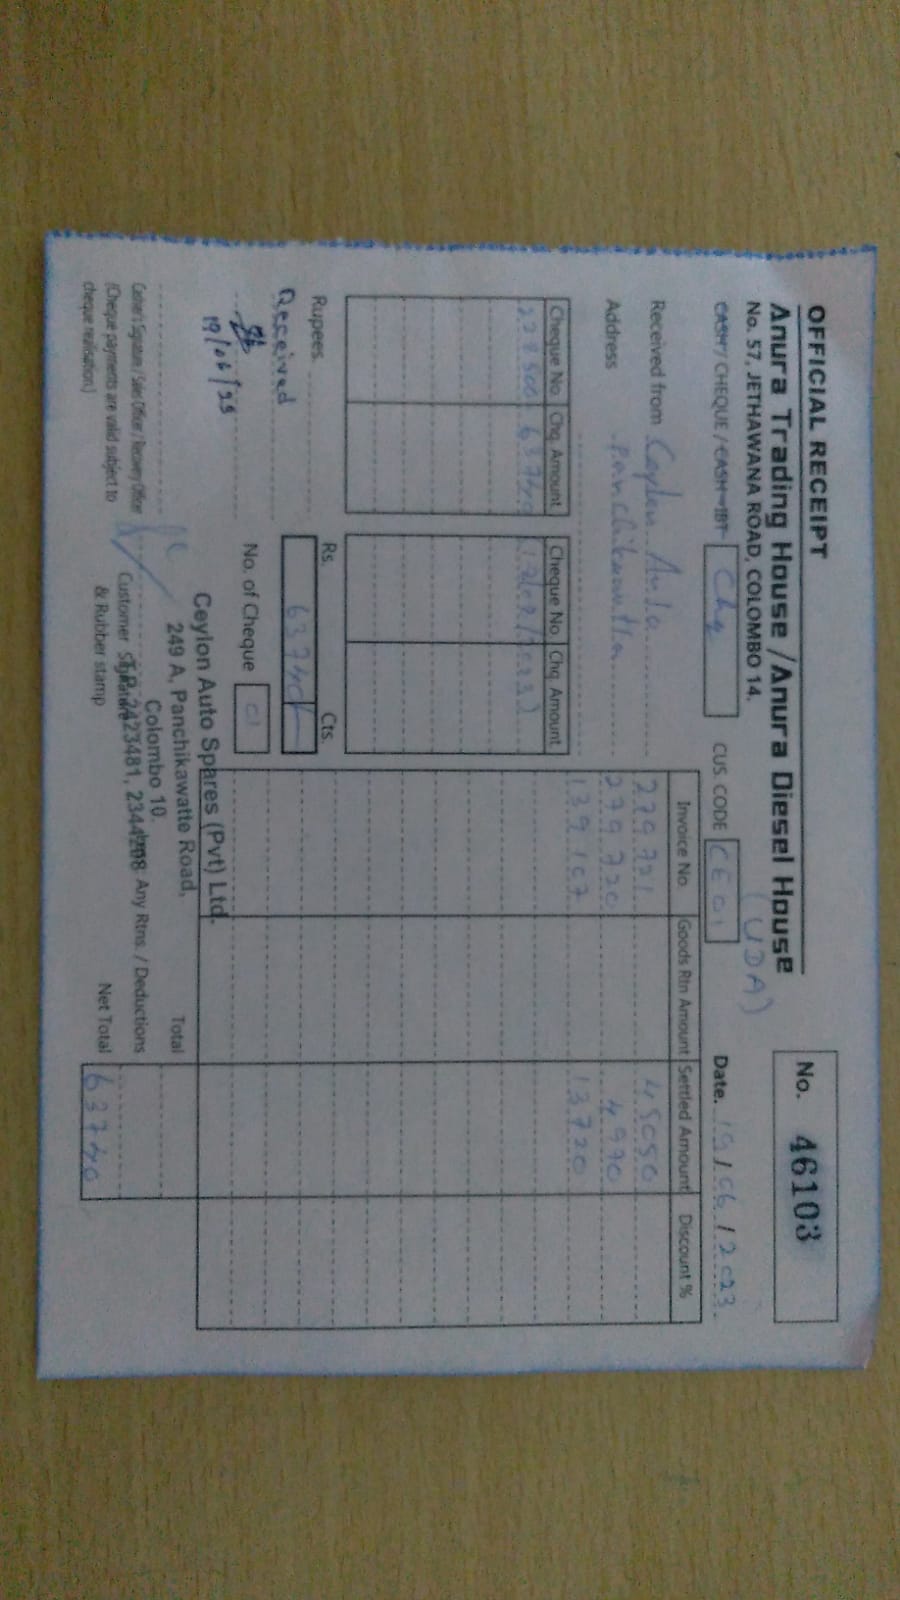 OFFICIAL RECEIPT
Anura Trading House / Anura Diesel House
No. 57, JETHAWANA ROAD, COLOMBO 14.
(UDA)
No. 46103
CASH / CHEQUE / CASH IBT Chq
CUS. CODE CE01
Date. 19/06/2023
Received from Ceylon Auto
Address Panchikawatta
Cheque No. Chq. Amount Cheque No. Chq. Amount
63740
Invoice No. Goods Rtn Amount Settled Amount Discount %
279721 45050
279720 4990
139107 13720
Rupees
Rs. Cts.
63740/-
Received
19/06/23
No. of Cheque 01
Ceylon Auto Spares (Pvt) Ltd.
249 A, Panchikawatte Road,
Colombo 10.
T.P. 2423481, 2344208
Cashier's Signature / Sales Officer / Recovery Officer
(Cheque payments are valid subject to
cheque realisation.)
Customer Signature
& Rubber stamp
Total
Any Rtns. / Deductions
Net Total 63740